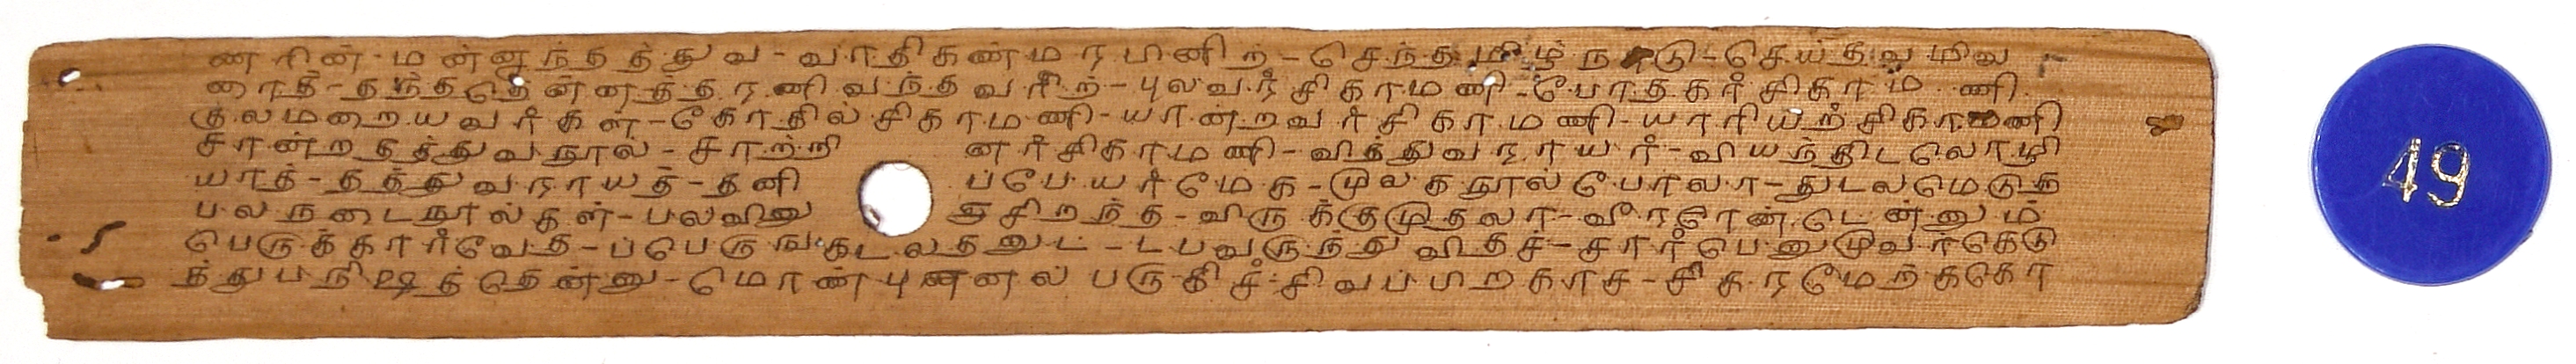 ணரின்-மன்னுந்தத்துவ-வாதிகண்மரபினிற்-செந்தமிழ்நாடு-செய்தவமிவ
ரைத்-தந்ததென்னத்தரணிவந்தவரிற்-புலவர்சிகாமணி-போதகர்சிகாம ணி
குலமறையவர்கள்-கோதில்சிகாமணி-யான்றவர்சிகாமணி-யாரியற்சிகாமணி
சான்றதத்துவநூல்-சாற்றி னர்சிகாமணி-வித்துவராயர்-வியந்திடலொழி
யாத்-தத்துவராயத்-தனி ப்பேயர்மேக-மூலகநூல்போலா-துடலமெடுத
பலநடைநூல்கள்-பலவினு சிறந்த-விருக்குமுதலா-வீரரண்டென்னும்
பெருக்கார்வேத-ப்பெருங்கடலதனுட்-டபவருந்துவிதச்-சார்பெனுமூவர்கெடு
த்துபநிஷத்தென்னு-மொண்புனனல் பருகிச்-சிவப்பிறகாச-சிகரமேற்ககொ
49